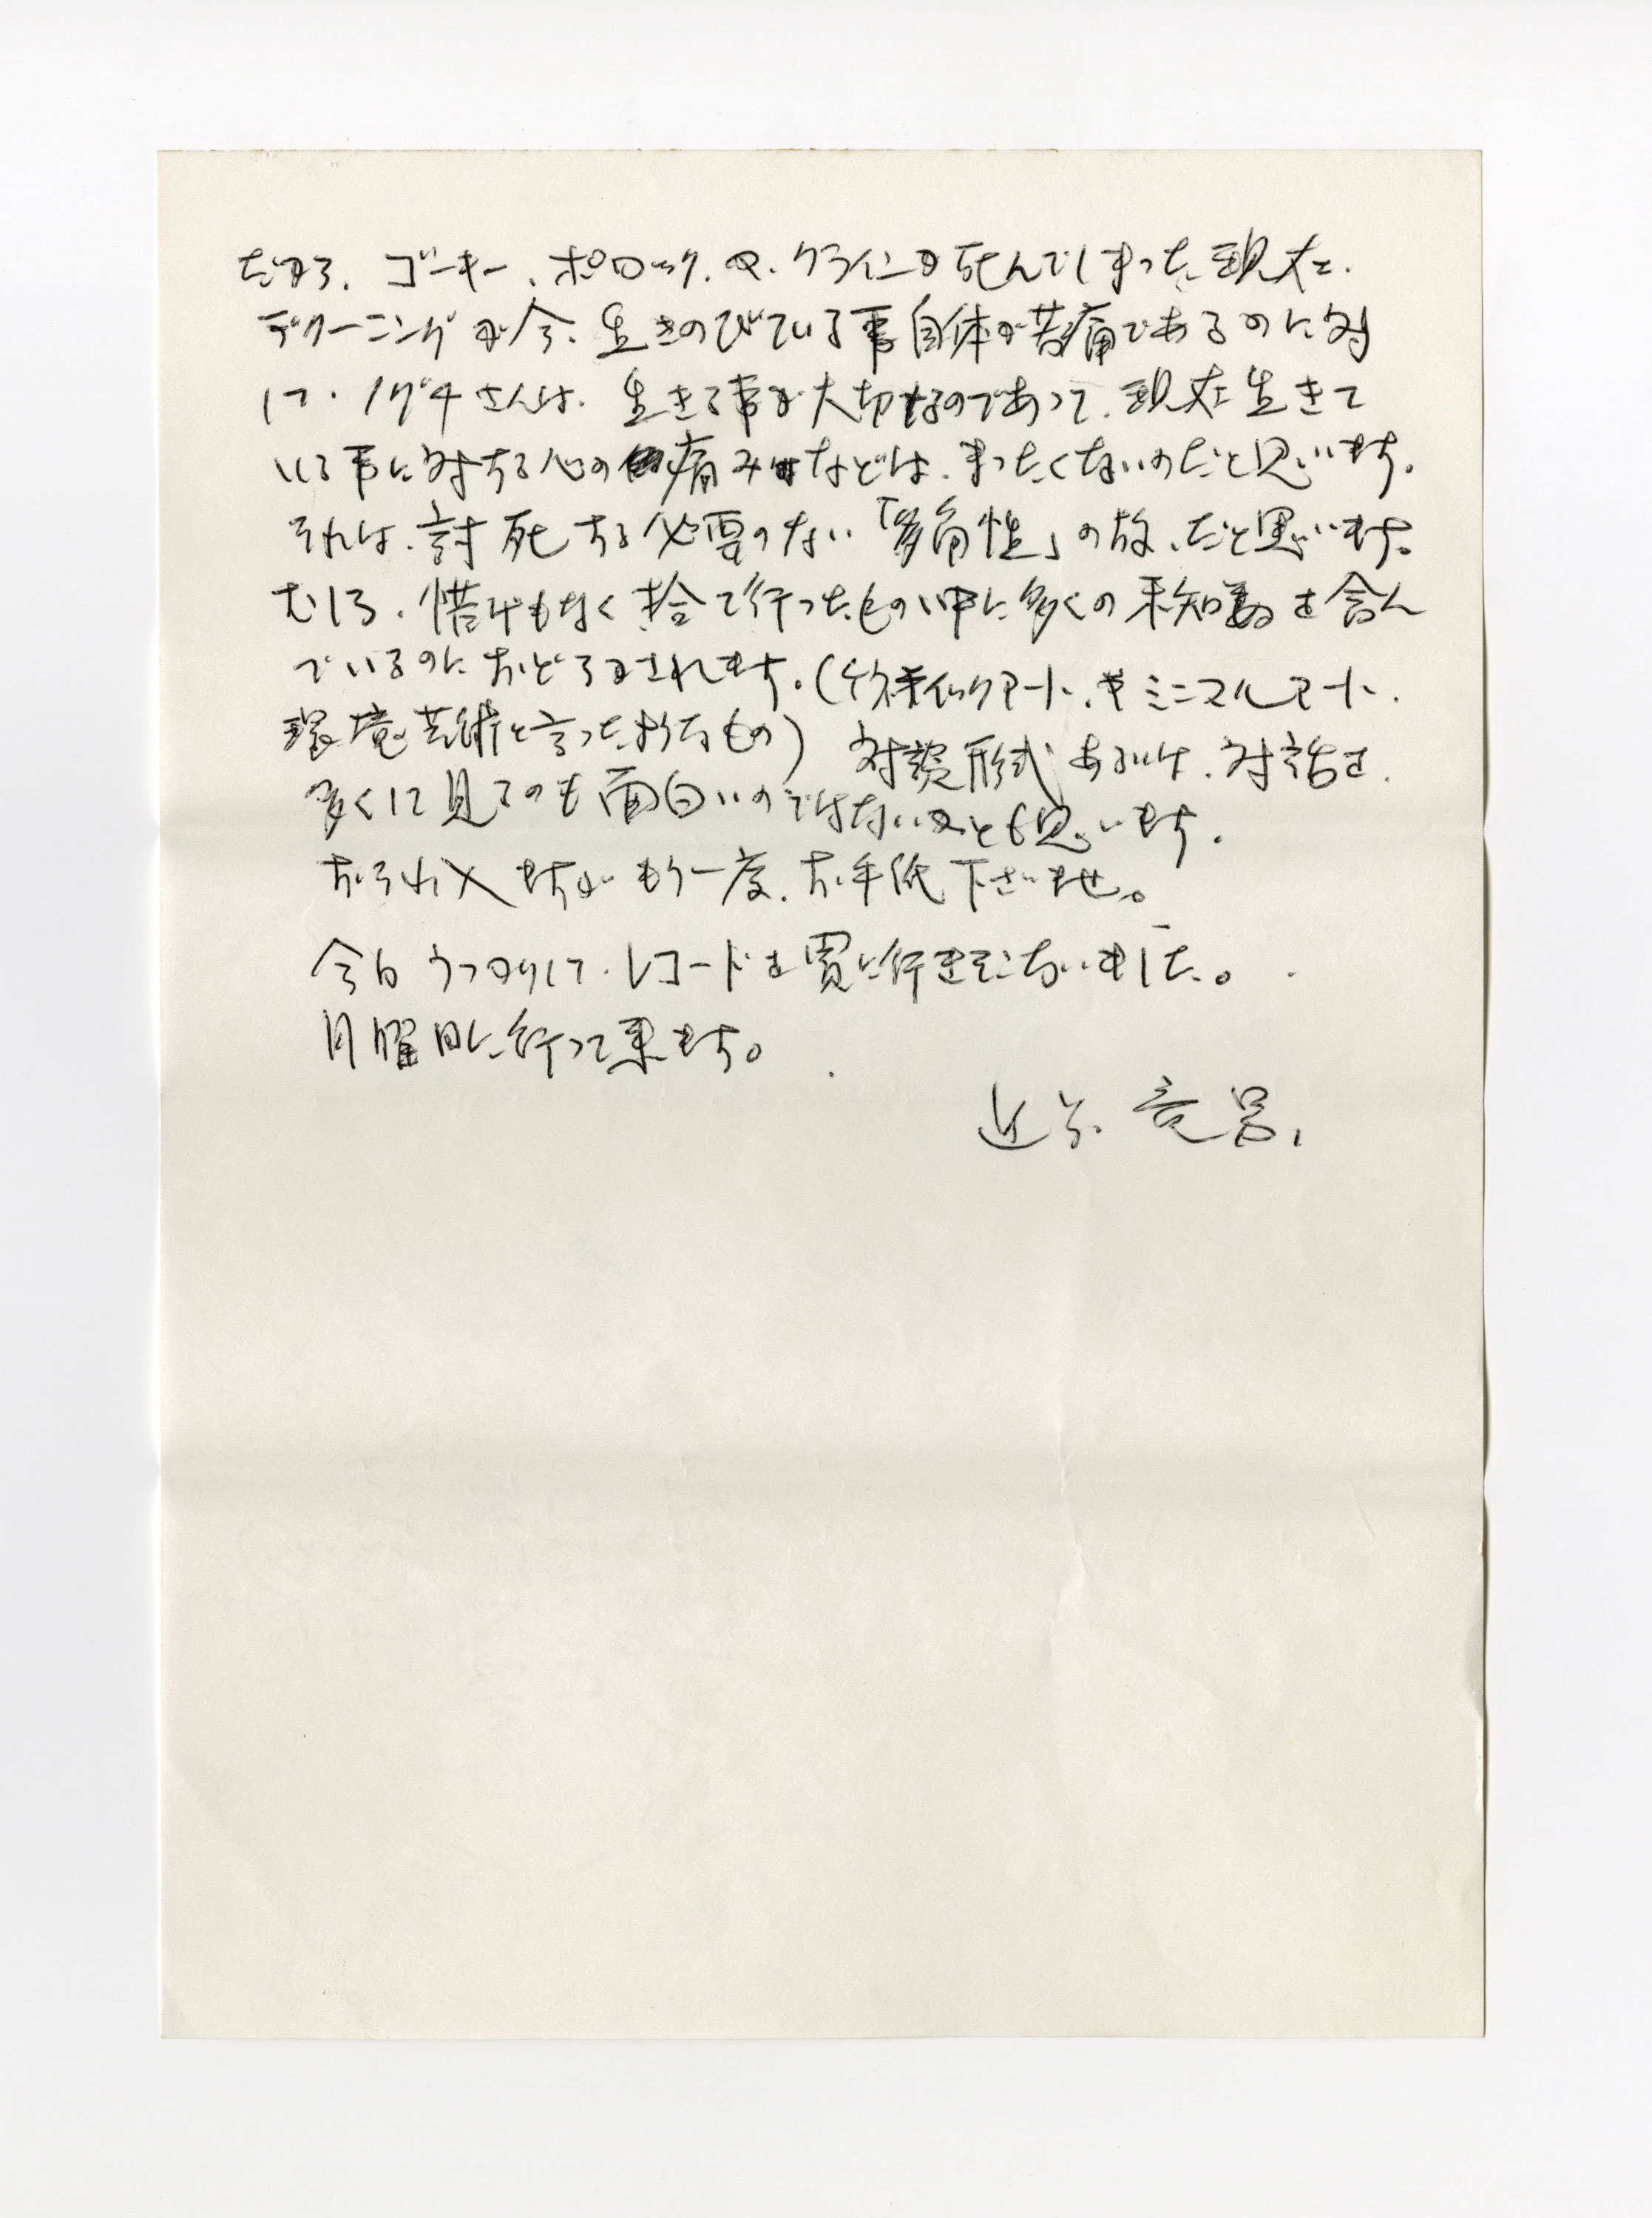 だから、ゴーキー、ポロック、や、クラインの死んでしまった現在、
デクーニングが今、生きのびている事自体が苦痛であるのに対
して、ノグチさんは、生きる事が大切なのであって、現在生きて
いる事に対する心の痛みなどは、まったくないのだと思います。
それは、討死する必要のない「多角性」の故、だと思います。
むしろ、惜げもなく捨て行ったものゝ中に多くの未知数を含ん
でいるのにおどろかされます。(キネティックアート、ミニマルアート、
環境芸術と言ったようなもの)対談形式あるいは、対話を、
多くして見るのも面白いのではないかとも思います。
おそれ入りますがもう一度、お手紙下さいませ。
今日うっかりして、レコードを買いに行きそこないました。
月曜日に行って来ます。
近